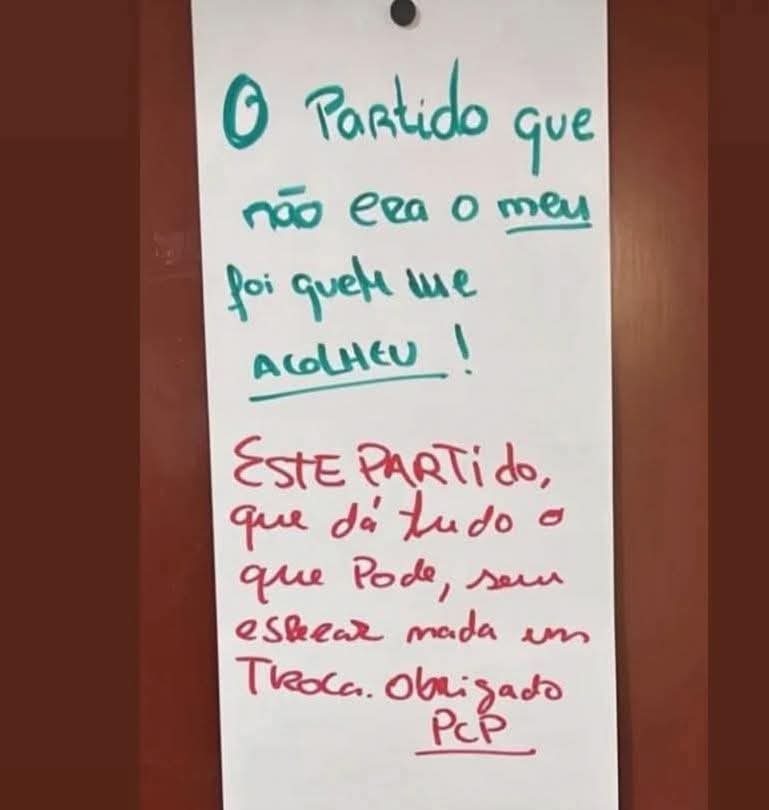 O Partido que
não era o meu
foi quem me
ACOLHEU!
ESTE PARTido,
que dá tudo o
que Pode, sem
esperar nada em
TRoca. Obrigado
PCP